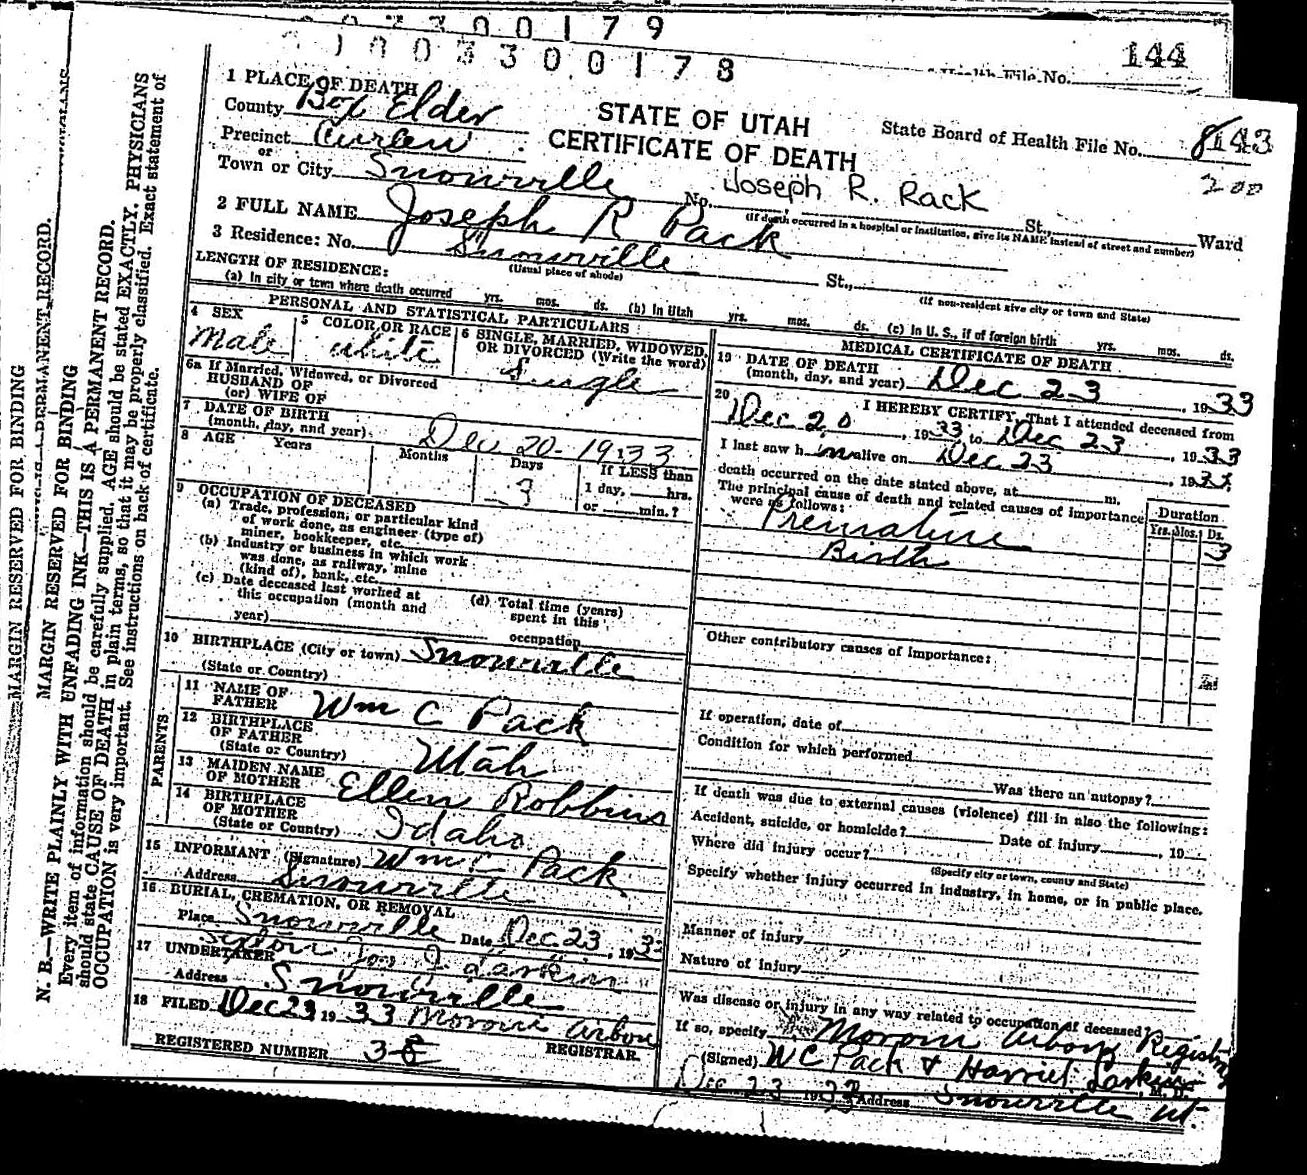 0 0 1 7 9
0 0 3 3 0 0 1 7 8
144
Health File No.
1 PLACE OF DEATH
County Box Elder
STATE OF UTAH
CERTIFICATE OF DEATH
State Board of Health File No. 143
200
Precinct Curlew
or
Town or City Snowville
No. Joseph R. Rack St., Ward
(If death occurred in a hospital or institution, give its NAME instead of street and number)
2 FULL NAME Joseph R Pack
3 Residence: No. Snowville St.,
(Usual place of abode)
(If non-resident give city or town and State)
LENGTH OF RESIDENCE:
(a) In city or town where death occurred yrs. mos. ds. (b) In Utah yrs. mos. ds. (c) In U. S., if of foreign birth yrs. mos. ds.
PERSONAL AND STATISTICAL PARTICULARS
4 SEX
Male
5 COLOR OR RACE
white
6 SINGLE, MARRIED, WIDOWED,
OR DIVORCED (Write the word)
Single
6a If Married, Widowed, or Divorced
HUSBAND OF
(or) WIFE OF
7 DATE OF BIRTH
(month, day, and year) Dec 20-1933
8 AGE Years Months Days If LESS than
3 1 day, hrs.
or min.?
9 OCCUPATION OF DECEASED
(a) Trade, profession, or particular kind
of work done, as engineer (type of)
miner, bookkeeper, etc.
(b) Industry or business in which work
was done, as railway, mine
(kind of), bank, etc.
(c) Date deceased last worked at
this occupation (month and
year)
(d) Total time (years)
spent in this
occupation
10 BIRTHPLACE (City or town) Snowville
(State or Country)
PARENTS
11 NAME OF
FATHER Wm C Pack
12 BIRTHPLACE
OF FATHER
(State or Country) Utah
13 MAIDEN NAME
OF MOTHER Ellen Robbins
14 BIRTHPLACE
OF MOTHER
(State or Country) Idaho
15 INFORMANT (Signature) Wm C Pack
Address Snowville
16 BURIAL, CREMATION, OR REMOVAL
Place Snowville Date Dec 23, 193
Sexton Jos J Larkin
17 UNDERTAKER
Address Snowville
18 FILED Dec 23 1933 Moroni Arbon
REGISTRAR.
REGISTERED NUMBER 3
MEDICAL CERTIFICATE OF DEATH
19 DATE OF DEATH
(month, day, and year) Dec 23, 1933
20 I HEREBY CERTIFY, That I attended deceased from
Dec 20, 1933, to Dec 23, 1933
I last saw him alive on Dec 23, 1933
death occurred on the date stated above, at m.
The principal cause of death and related causes of importance
were as follows:
Duration
Yrs. Mos. Ds.
Premature 3
Birth
Other contributory causes of importance:
If operation, date of
Condition for which performed
Was there an autopsy?
If death was due to external causes (violence) fill in also the following:
Accident, suicide, or homicide? Date of injury , 19
Where did injury occur?
(Specify city or town, county and State)
Specify whether injury occurred in industry, in home, or in public place.
Manner of injury
Nature of injury
Was disease or injury in any way related to occupation of deceased?
If so, specify Moroni Arbon Registrar
(Signed) W C Pack & Harriet Larkin, M. D.
Dec 23 1933 Address Snowville Ut.
MARGIN RESERVED FOR BINDING
MARGIN RESERVED FOR BINDING
N. B.—WRITE PLAINLY WITH UNFADING INK—THIS IS A PERMANENT RECORD.
Every item of information should be carefully supplied. AGE should be stated EXACTLY. PHYSICIANS
should state CAUSE OF DEATH in plain terms, so that it may be properly classified. Exact statement of
OCCUPATION is very important. See instructions on back of certificate.